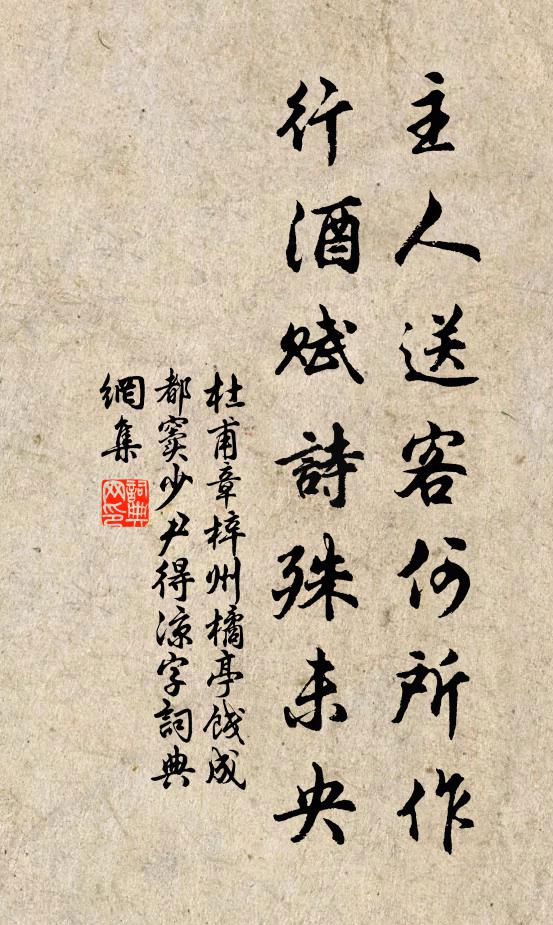 主人送客何所作
行酒賦詩殊未央
杜甫章梓州橘亭餞成
都竇少尹得涼字詞典
網集
詞典
网印